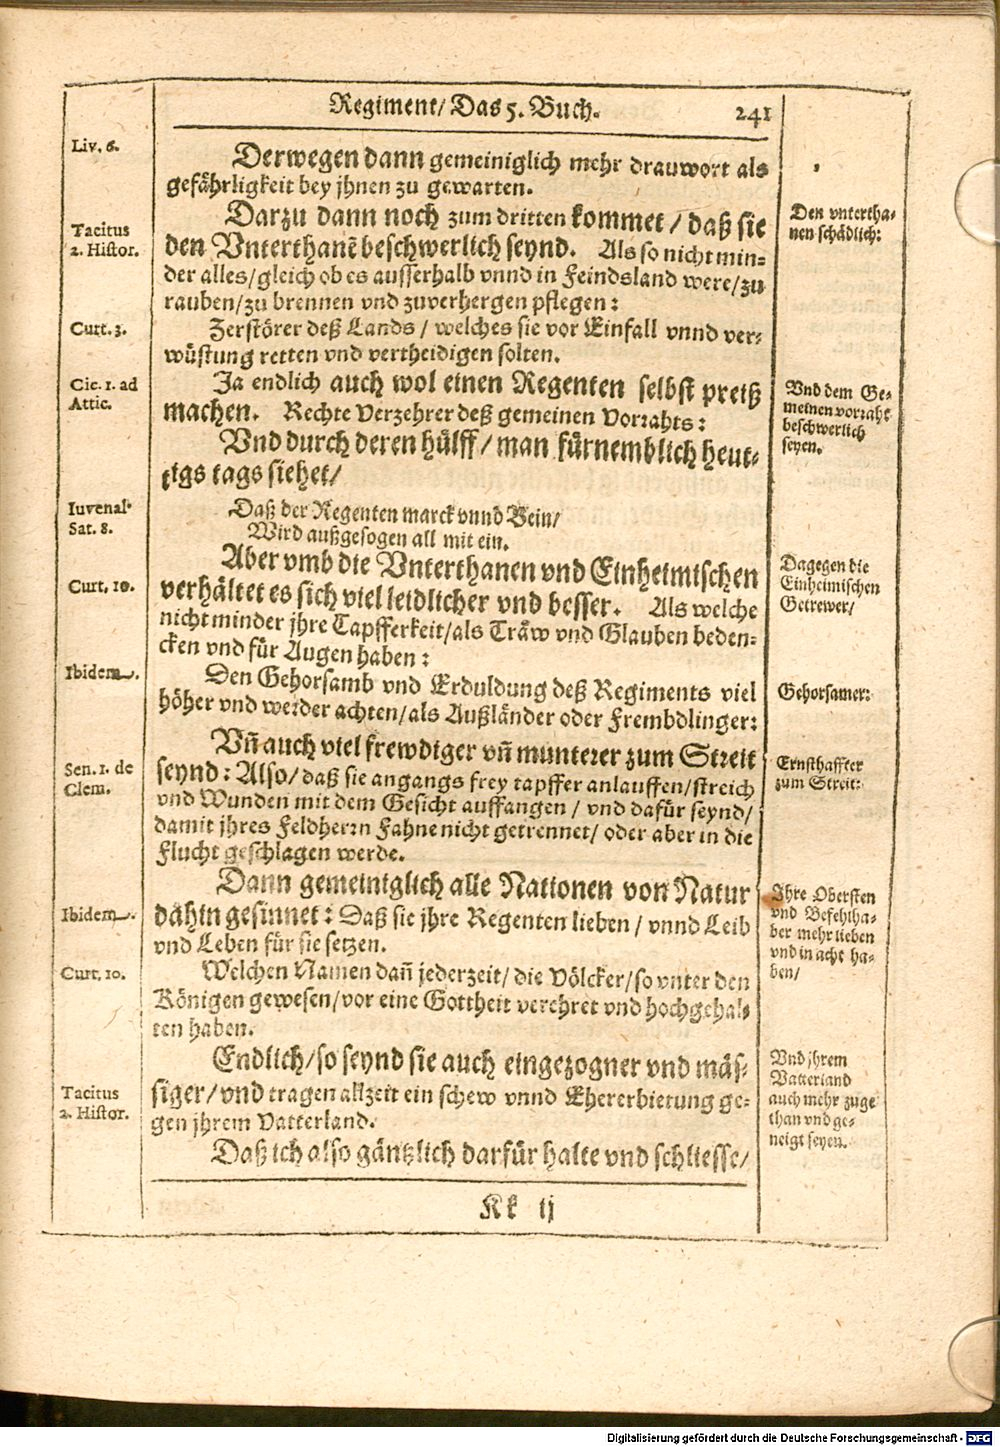 Regiment/ Das 5. Buch. 241
Liv. 6.
Derwegen dann gemeiniglich mehr drauwort als
gefährligkeit bey jhnen zu gewarten.
Tacitus
2. Histor.
Darzu dann noch zum dritten kommet / daß sie
den Vnterthanē beschwerlich seynd. Als so nicht min-
der alles/gleich ob es ausserhalb vnnd in Feindsland were/zu
rauben/zu brennen vnd zuverhergen pflegen:
Den vntertha-
nen schädlich:
Curt. 3.
Zerstörer deß Lands / welches sie vor Einfall vnnd ver-
wüstung retten vnd vertheidigen solten.
Cic. 1. ad
Attic.
Ja endlich auch wol einen Regenten selbst preiß
machen. Rechte Verzehrer deß gemeinen Vorrahts:
Vnd dem Ge-
meinen vorraht
beschwerlich
seyen.
Vnd durch deren hülff / man fürnemblich heut-
tigs tags siehet/
Iuvenal.
Sat. 8.
Daß der Regenten marck vnnd Bein/
Wird außgesogen all mit ein.
Aber vmb die Vnterthanen vnd Einheimischen
verhältet es sich viel leidlicher vnd besser. Als welche
nicht minder jhre Tapfferkeit/als Träw vnd Glauben beden-
cken vnd für Augen haben:
Curt. 10.
Dagegen die
Einheimischen
Getrewer/
Ibidem.
Den Gehorsamb vnd Erduldung deß Regiments viel
höher vnd werder achten/als Außländer oder Frembdlinger:
Gehorsamer:
Vñ auch viel frewdiger vñ munterer zum Streit
seynd: Also/ daß sie angangs frey tapffer anlauffen/streich
vnd Wunden mit dem Gesicht auffangen / vnd dafür seynd/
damit jhres Feldherrn Fahne nicht getrennet/ oder aber in die
Flucht geschlagen werde.
Sen. 1. de
Clem.
Ernsthaffter
zum Streit:
Dann gemeiniglich alle Nationen von Natur
dahin gesinnet: Daß sie jhre Regenten lieben / vnnd Leib
vnd Leben für sie setzen.
Ibidem.
Ihre Obersten
vnd Befehlha-
ber mehr lieben
vnd in acht ha-
ben/
Curt. 10.
Welchen Namen dañ jederzeit/ die Völcker/so vnter den
Königen gewesen/vor eine Gottheit verehret vnd hochgehal-
ten haben.
Endlich/so seynd sie auch eingezogner vnd mäs-
siger/vnd tragen allzeit ein schew vnnd Ehererbietung ge-
gen jhrem Vatterland.
Tacitus
2. Histor.
Vnd jhrem
Vatterland
auch mehr zuge
than vnd ge-
neigt seyen.
Daß ich also gäntzlich darfür halte vnd schliesse/
Kk ij
Digitalisierung gefördert durch die Deutsche Forschungsgemeinschaft - DFG